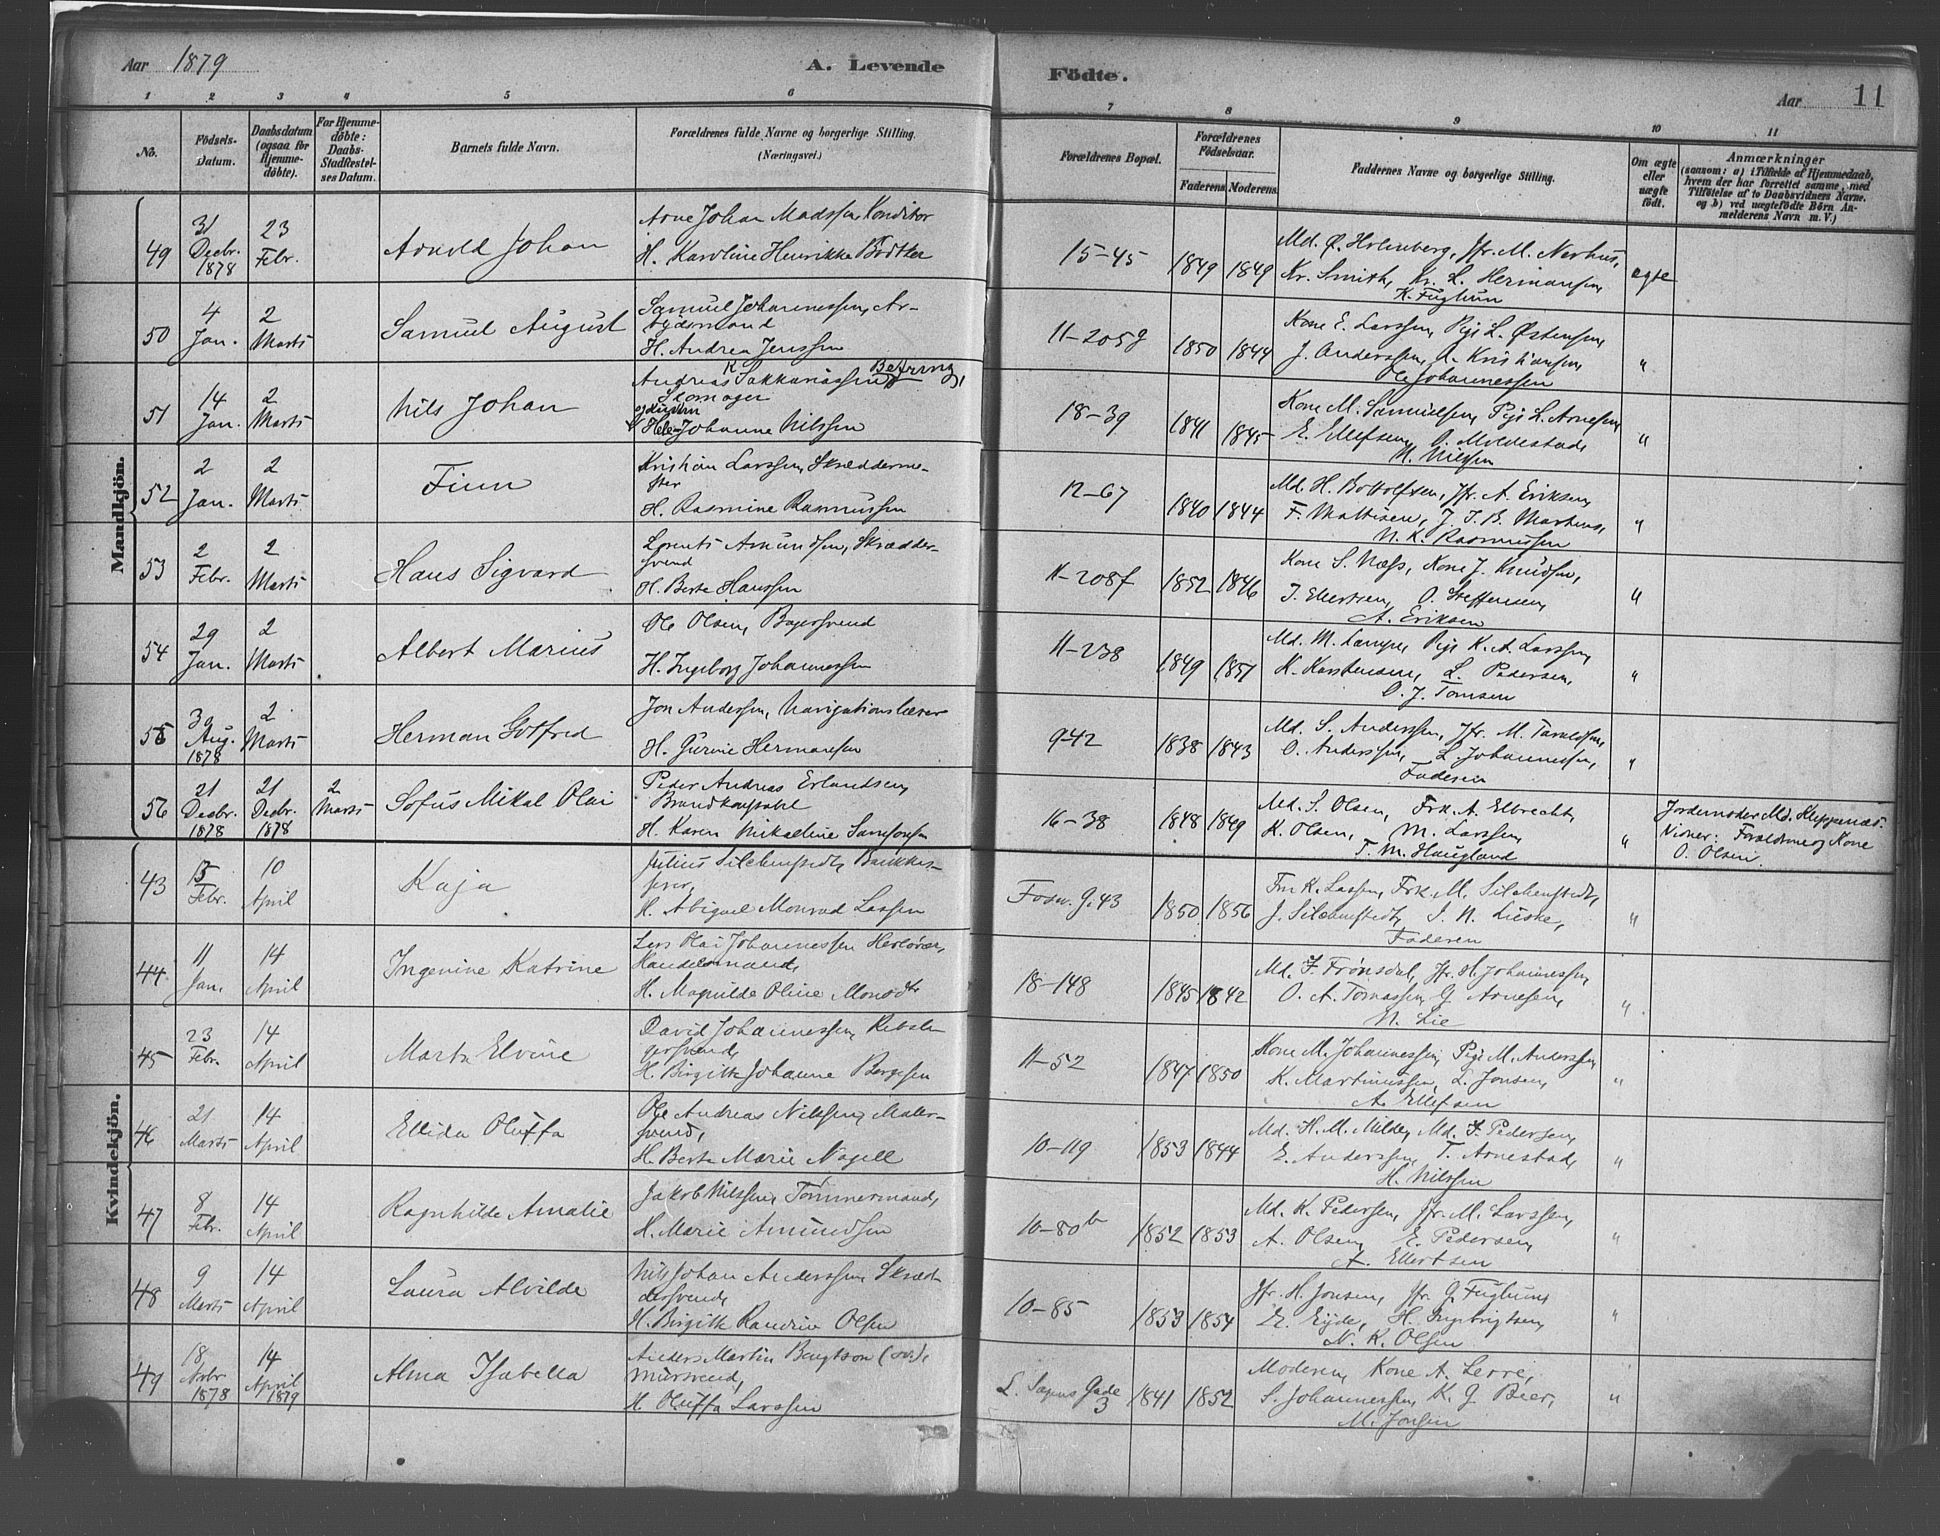 Aar 1879
A. Levende
Födte.
Aar 11
1 2 3 4 5 6 7 8 9 10 11
No.
Födsels-Datum.
Daabsdatum (ogsaa for Hjemmedöbte).
For Hjemmedöbte: Daabs-Stadfæstelses Datum.
Barnets fulde Navn.
Forældrenes fulde Navne og borgerlige Stilling. (Næringsvei.)
Forældrenes Bopæl.
Forældrenes Födselsaar.
Faderens. Moderens.
Faddernes Navne og borgerlige Stilling.
Om ægte eller uægte født.
Anmærkninger
(saasom: a) i Tilfælde af Hjemmedaab, hvem der har forrettet samme, med Tilföielse af to Daabsvidners Navne. og b) ved uægtefödte Börn Anmelderens Navn m. V.)
Mandkjön.
49 31 Decbr. 1878 23 Febr. Arnold Johan
Arne Johan Madssen, Konditor
H. Karoline Henrikke Bödtker
15-45 1849 1849
Md. Ø. Holmberg, Jfr. M. Nerhus,
Kr. Smith, Kr. L. Hermansen,
K. Fuglum
ægte
50 4 Jan. 2 Marts Samuel August
Samuel Johannessen, Ar-
beidsmand
H. Andrea Jenssen
11-205g 1850 1844
Kone E. Larssen, Pige L. Østensen,
J. Anderssen, A. Kristiansen,
Ole Johannessen
"
51 14 Jan. 2 Marts Nils Johan
Andreas K Sakkariassen Betring,
Skomager
Hele Johanne Nilssen
18-39 1841 1845
Kone M. Samuelsen, Pige L. Arnesen,
E. Ellefsen, O. Moldestad,
N. Nilssen
"
52 2 Jan. 2 Marts Finn
Kristian Larssen, Skrædderme-
ster
H. Rasmine Rasmussen
12-67 1840 1844
Md. H. Bottolfsen, Jfr. A. Eriksen,
F. Mattisen, J. J. B. Martens,
N. K. Rasmussen
"
53 2 Febr. 2 Marts Hans Sigvard
Lorents Amundsen, Skrædder-
svend
H. Berte Hanssen
11-208f 1852 1846
Kone S. Næss, Kone J. Knudsen,
J. Ellertsen, O. Steffensen,
A. Eriksen
"
54 29 Jan. 2 Marts Albert Marius
Ole Olsen, Bagersvend
H. Ingeborg Johannessen
11-238 1849 1851
Md. M. Lampe, Pige K. A. Larssen,
K. Karstensen, L. Pedersen,
O. J. Tomsen
"
55 30 Aug. 1878 2 Marts Herman Gotfred
Jon Anderssen, Navigationslærer
H. Gurine Hermansen
9-42 1838 1843
Md. S. Anderssen, Jfr. M. Taraldsen,
O. Anderssen, L. Johannessen,
Faderen
"
56 21 Decbr. 1878 21 Decbr. 1878 2 Marts Sofus Mikal Olai
Peder Andreas Erlandsen,
Brandkonstabel
H. Karen Mikaeline Samsonsen
16-38 1848 1849
Md. S. Olsen, Frk. A. Elbrecht,
K. Olsen, M. Larssen,
T. M. Haugland
"
Jordemoder Md. Kleppenæs.
Vidner: Forældrene og Kone
O. Olsen.
Kvindekjön.
43 15 Febr. 10 April Kaja
Julius Silchenstedt,
H. Abigael Monrad Lassen
Fosw. G. 43 1850 1856
Fru K. Lassen, Frk. M. Silchenstedt,
J. Silchenstedt, S. N. Lieske,
Faderen
"
44 11 Jan. 14 April Ingevine Katrine
Lars Olai Johannessen Herlövær,
Handelsmand,
H. Magnilde Oline Monsdtr
18-148 1845 1842
Md. F. Frönsdal, Jfr. H. Johannessen,
O. A. Tomassen, G. Arnesen,
N. Lie
"
45 23 Febr. 14 April Marta Elvine
David Johannessen, Rebsla-
gersvend,
H. Birgitte Johanne Borgesen
11-52 1847 1850
Kone M. Johannessen, Pige M. Anderssen,
K. Martinussen, L. Jonsen,
A. Ellefsen
"
46 21 Marts 14 April Ellida Oluffa
Ole Andreas Nilssen, Maler-
svend,
H. Berte Marie Nagell
10-119 1853 1844
Md. H. M. Milde, Md. J. Pedersen,
E. Anderssen, T. Arnestad,
H. Nilssen
"
47 8 Febr. 14 April Ragnhilde Amalie
Jakob Nilssen, Tömmermand,
H. Marie Amundsen
10-80b 1852 1853
Md. K. Pedersen, Jfr. M. Larssen,
A. Olsen, E. Pedersen,
A. Ellertsen
"
48 9 Marts 14 April Laura Alvilde
Nils Johan Anderssen, Skræd-
dersvend,
H. Birgitte Randine Olsen
10-85 1853 1854
Jfr. H. Jonsen, Jfr. G. Fuglum,
Er. Eyde, H. Ingebrigtsen,
N. K. Olsen
"
49 18 Novbr 1878 14 April 1879 Alma Isabella
Anders Martin Bengtson (sv.),
Mursvend,
H. Oluffa Larssen
L. Sagens Gade 3 1841 1852
Moderen, Kone A. Lerre,
S. Johannessen, K. G. Beer,
M. Jonsen
"